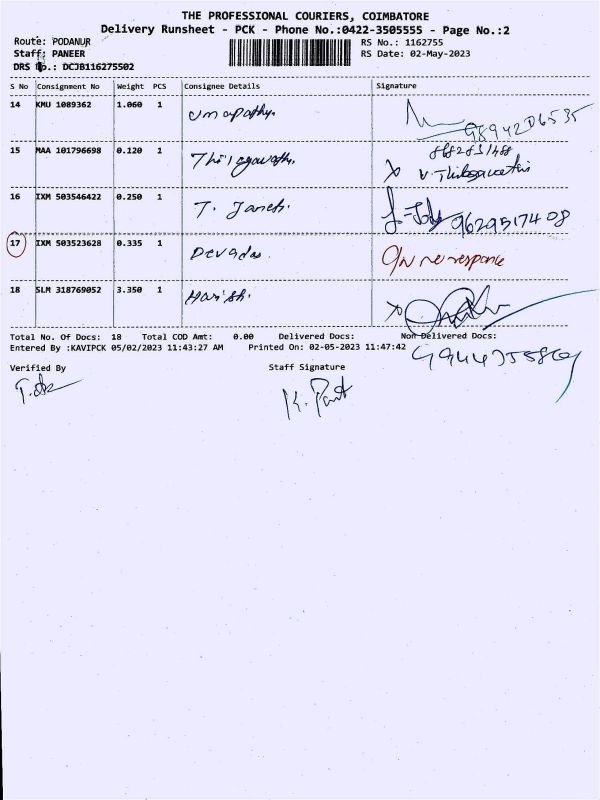 THE PROFESSIONAL COURIERS, COIMBATORE
Delivery Runsheet - PCK - Phone No.:0422-3505555 - Page No.:2
Route: PODANUR RS No.: 1162755
Staff: PANEER RS Date: 02-May-2023
DRS No.: DCJB116275502
S No Consignment No Weight PCS Consignee Details Signature
14 KMU 1089362 1.060 1 Umapathy.
15 MAA 101796698 0.120 1 Thilagavathi.
16 IXM 503546422 0.250 1 T. Janeth. 9629517408
17 IXM 503523628 0.335 1 Devadas. no response
18 SLM 318769052 3.350 1 Harish.
Total No. Of Docs: 18 Total COD Amt: 0.00 Delivered Docs: Non Delivered Docs:
Entered By :KAVIPCK 05/02/2023 11:43:27 AM Printed On: 02-05-2023 11:47:42
Verified By Staff Signature